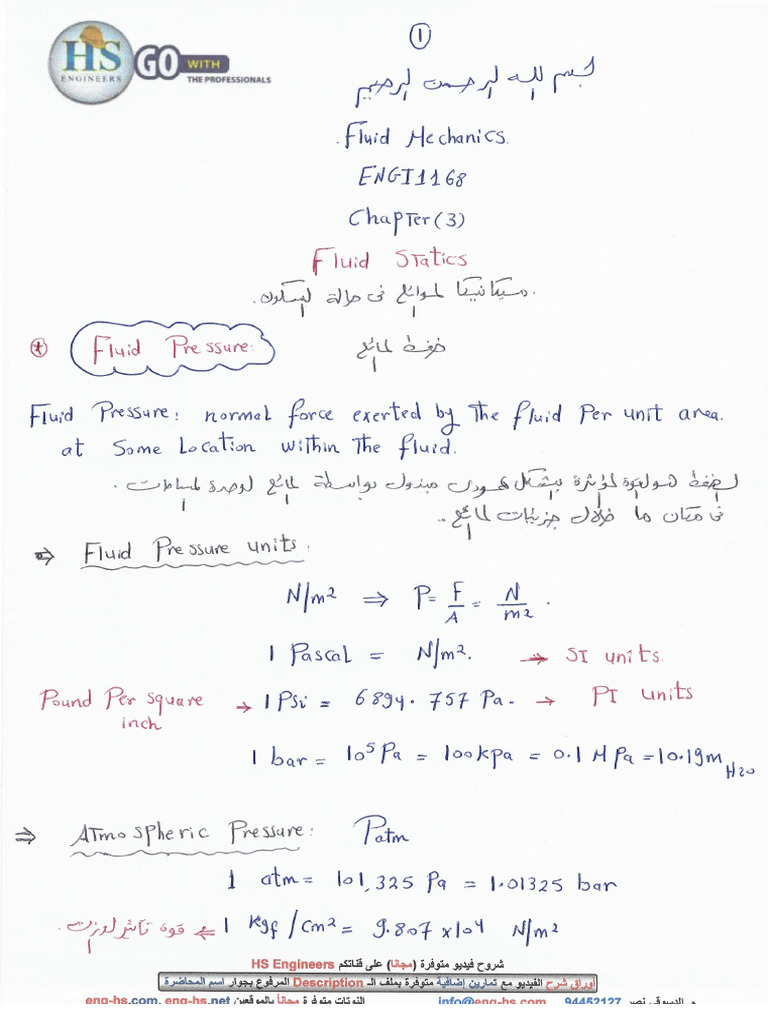 HS
ENGINEERS
GO WITH
THE PROFESSIONALS
1
بسم الله الرحمن الرحيم
Fluid Mechanics.
ENGI1168
Chapter (3)
Fluid Statics
ميكانيكا الموائع فى حالة السكون.
* Fluid Pressure: ضغط المائع
Fluid Pressure: normal force exerted by the fluid Per unit area.
at Some Location within the fluid.
الضغط هو القوة المؤثرة بشكل عمودى مبذول بواسطة المائع لوحدة المساحات.
فى مكان ما خلال جزيئات المائع..
⇒ Fluid Pressure units.
N/m² ⇒ P = F/A = N/m².
1 Pascal = N/m². → SI units.
Pound Per square inch → 1 Psi = 6894.757 Pa. → PI units
1 bar = 10⁵ Pa = 100kpa = 0.1 MPa = 10.19m H2O
⇒ ATmospheric Pressure: Patm
1 atm = 101,325 Pa = 1.01325 bar
قوة تأثير الوزن. ⇐ 1 kgf/cm² = 9.807 x10⁴ N/m²
شروح فيديو متوفرة (مجانا) على قناتكم HS Engineers
أوراق شرح الفيديو مع تمارين إضافية متوفرة بملف الـ Description المرفوع بجوار اسم المحاضرة
م. الدسوقي نصر 94452127 info@eng-hs.com النوتات متوفرة مجاناً بالموقعين eng-hs.com, eng-hs.net